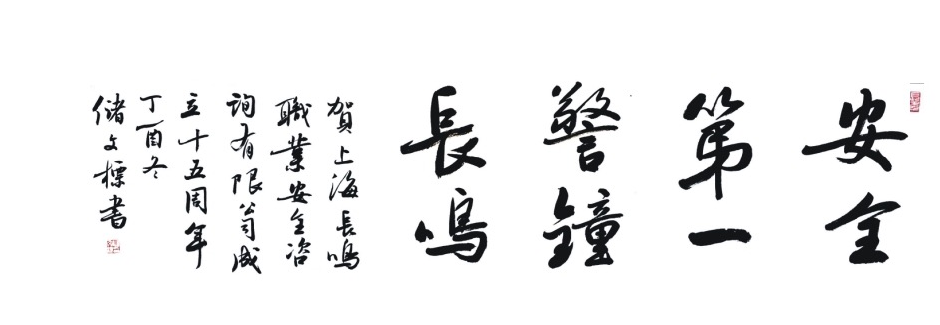 安全
第一
警鐘
長鳴
賀上海長鳴
職業安全咨
詢有限公司成
立十五周年
丁酉冬
储文標書